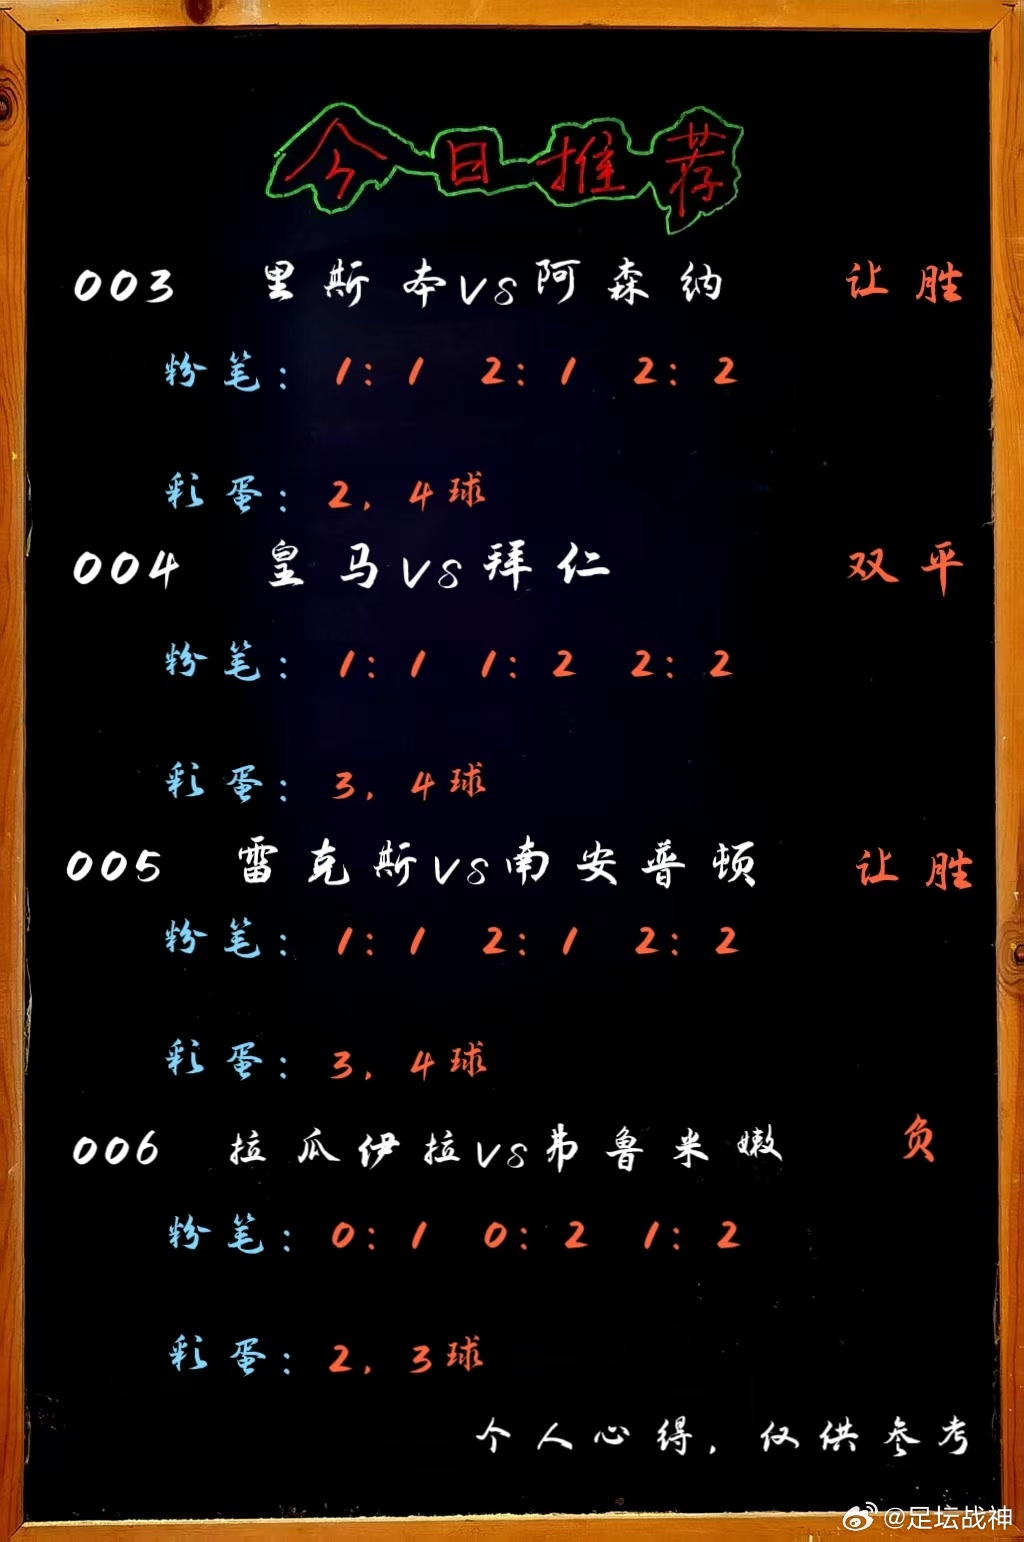 今日推荐
003 里斯本vs阿森纳 让胜
粉笔: 1:1 2:1 2:2
彩蛋: 2, 4球
004 皇马vs拜仁 双平
粉笔: 1:1 1:2 2:2
彩蛋: 3, 4球
005 雷克斯vs南安普顿 让胜
粉笔: 1:1 2:1 2:2
彩蛋: 3, 4球
006 拉瓜伊拉vs弗鲁米嫩 负
粉笔: 0:1 0:2 1:2
彩蛋: 2, 3球
个人心得, 仅供参考
@足坛战神